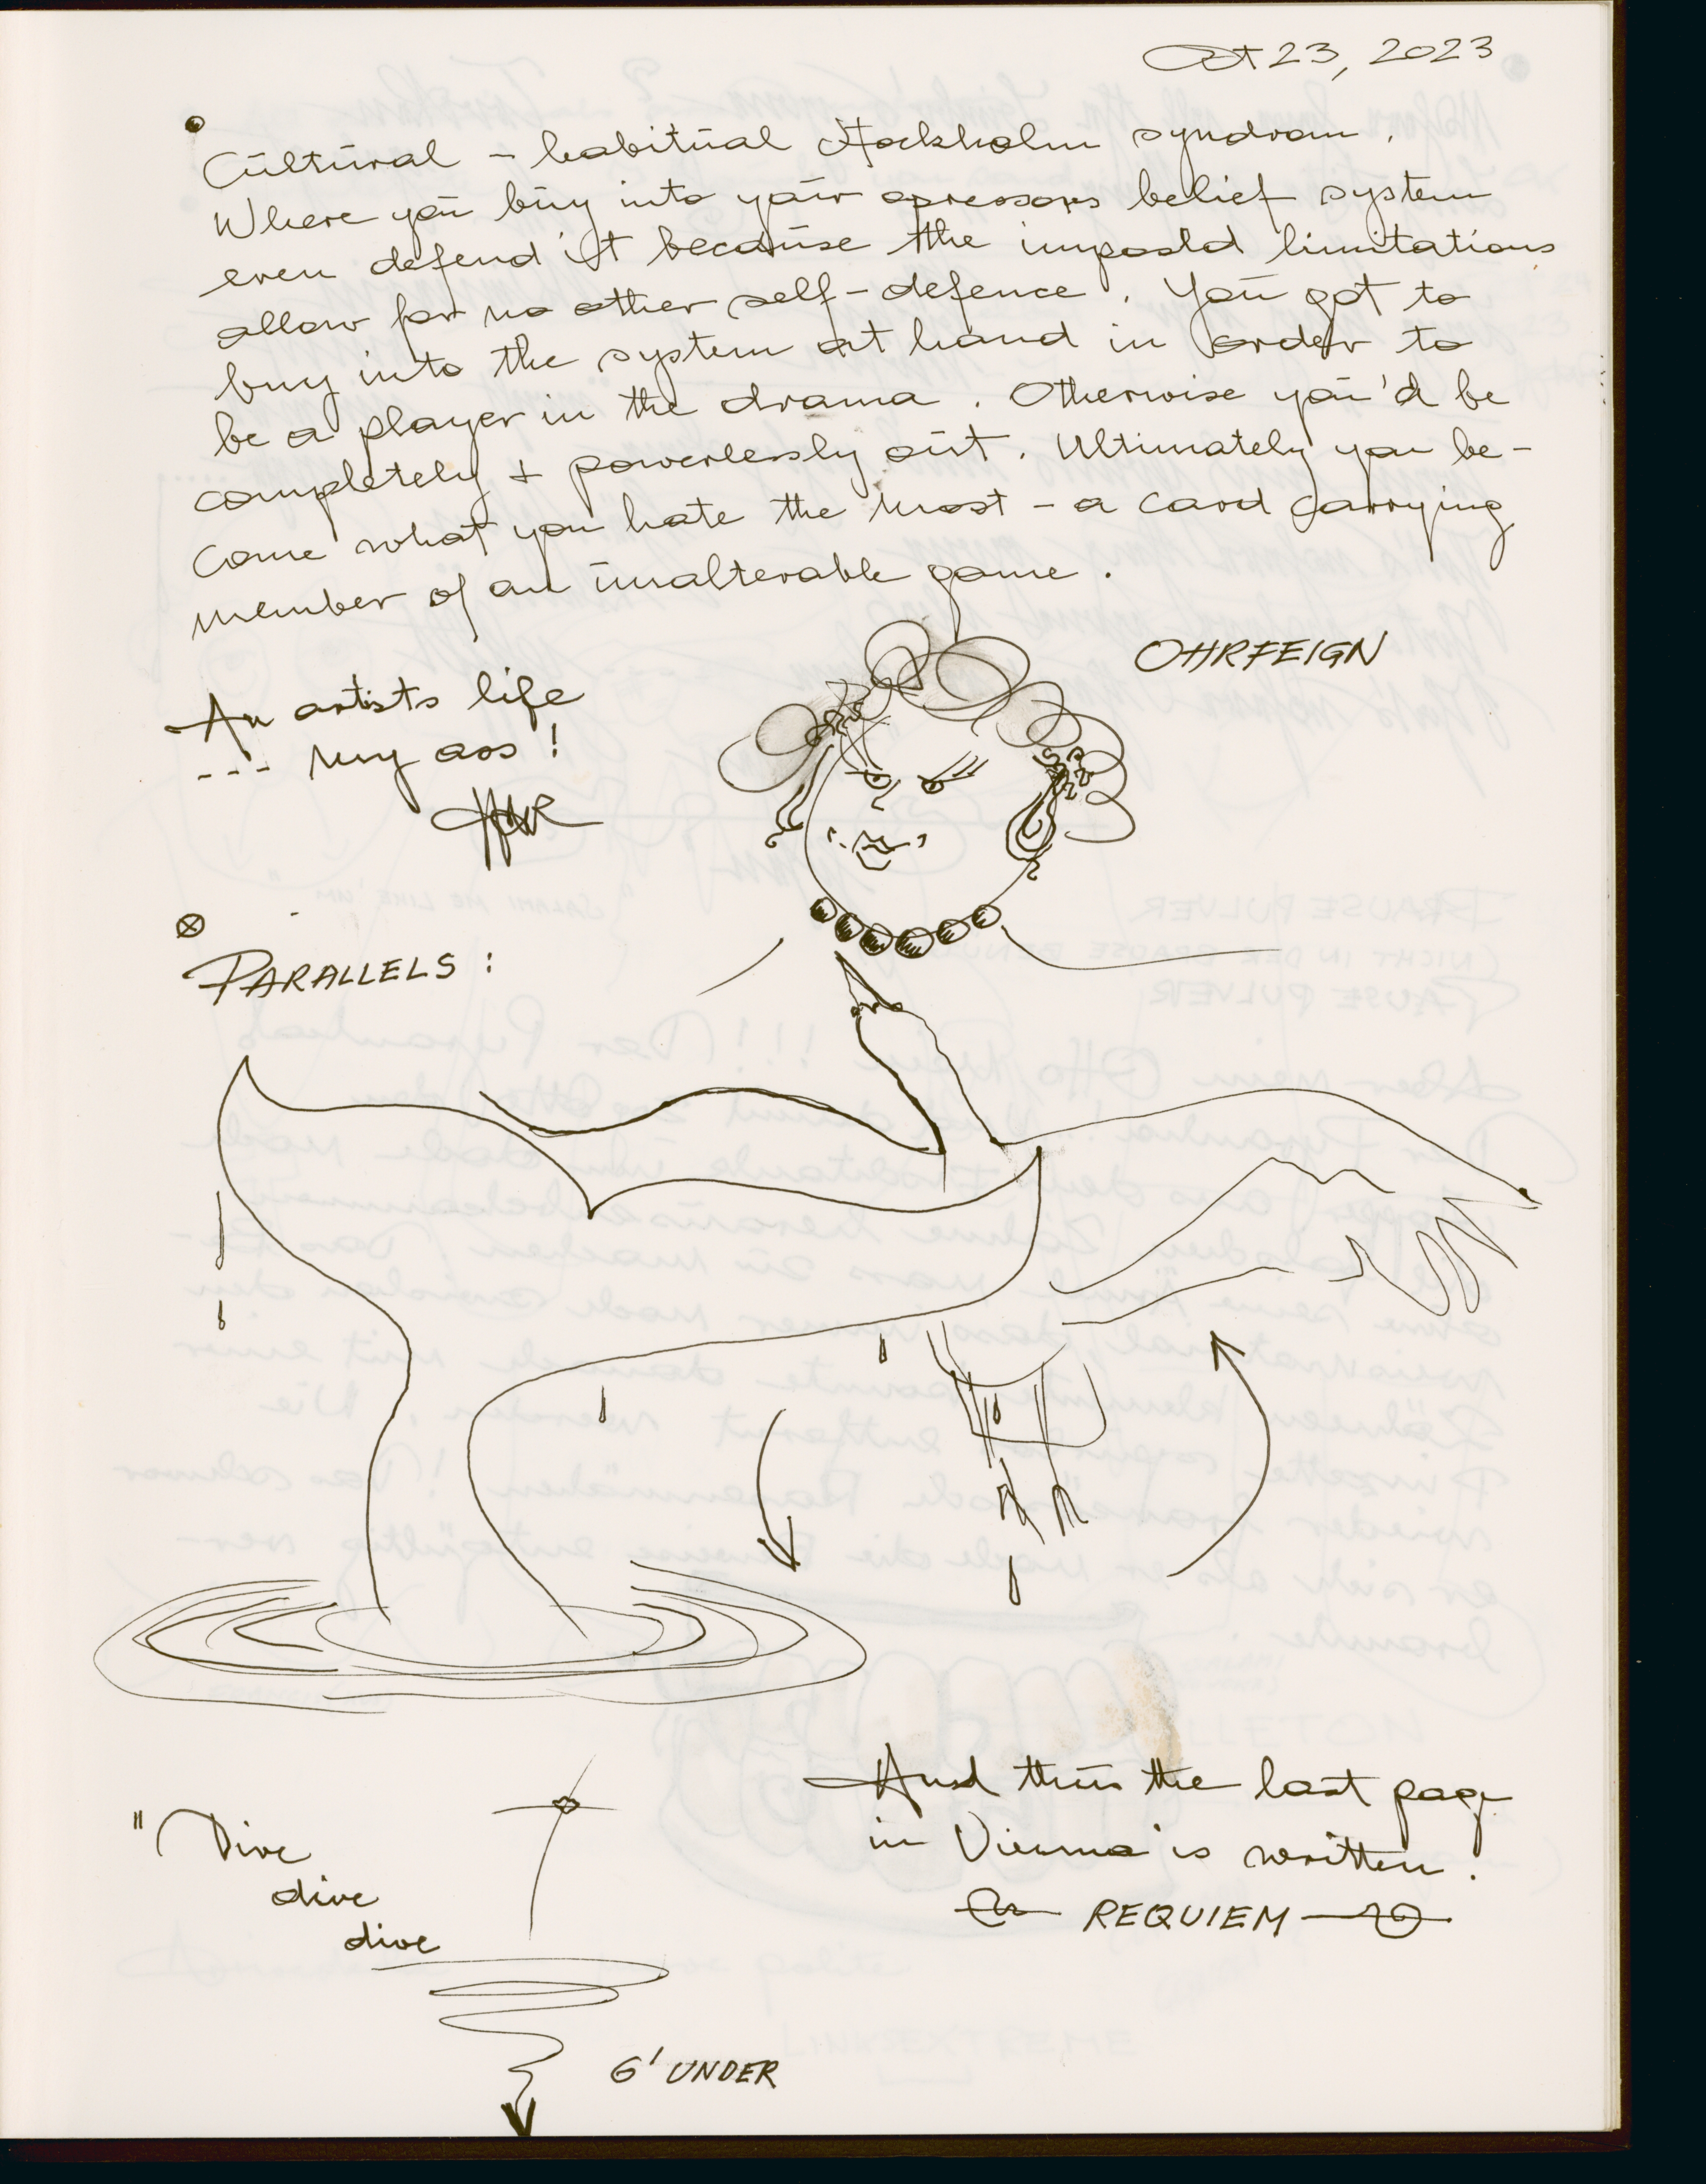 Oct 23, 2023
Cultural - habitual Stockholm syndrom.
Where you buy into your opressors belief system
even defend it because the imposed limitations
allow for no other self-defence. You got to
buy into the system at hand in order to
be a player in the drama. Otherwise you'd be
completely + powerlessly out. Ultimately you be-
come what you hate the most - a card carrying
member of an unalterable game.
OHRFEIGN
An artists life
--- my ass!
PARALLELS:
And thus the last page
in Vienna is written.
REQUIEM
"Dive
dive
dive
6' UNDER